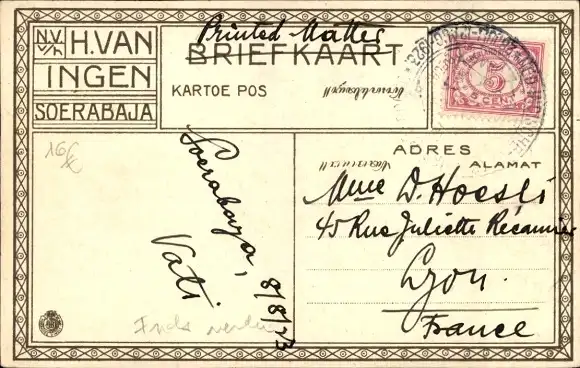 N.V. v/h H. VAN
INGEN
SOERABAJA
Printed Matter
BRIEFKAART
KARTOE POS
5
CENT
ADRES
ALAMAT
Mme D. Hoesli
45 Rue Juliette Récamier
Lyon.
France
Soerabaya,
8/8/23
Vati